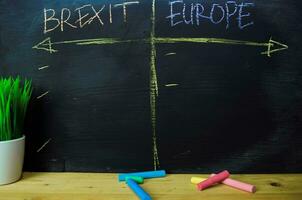 BREXIT EUROPE